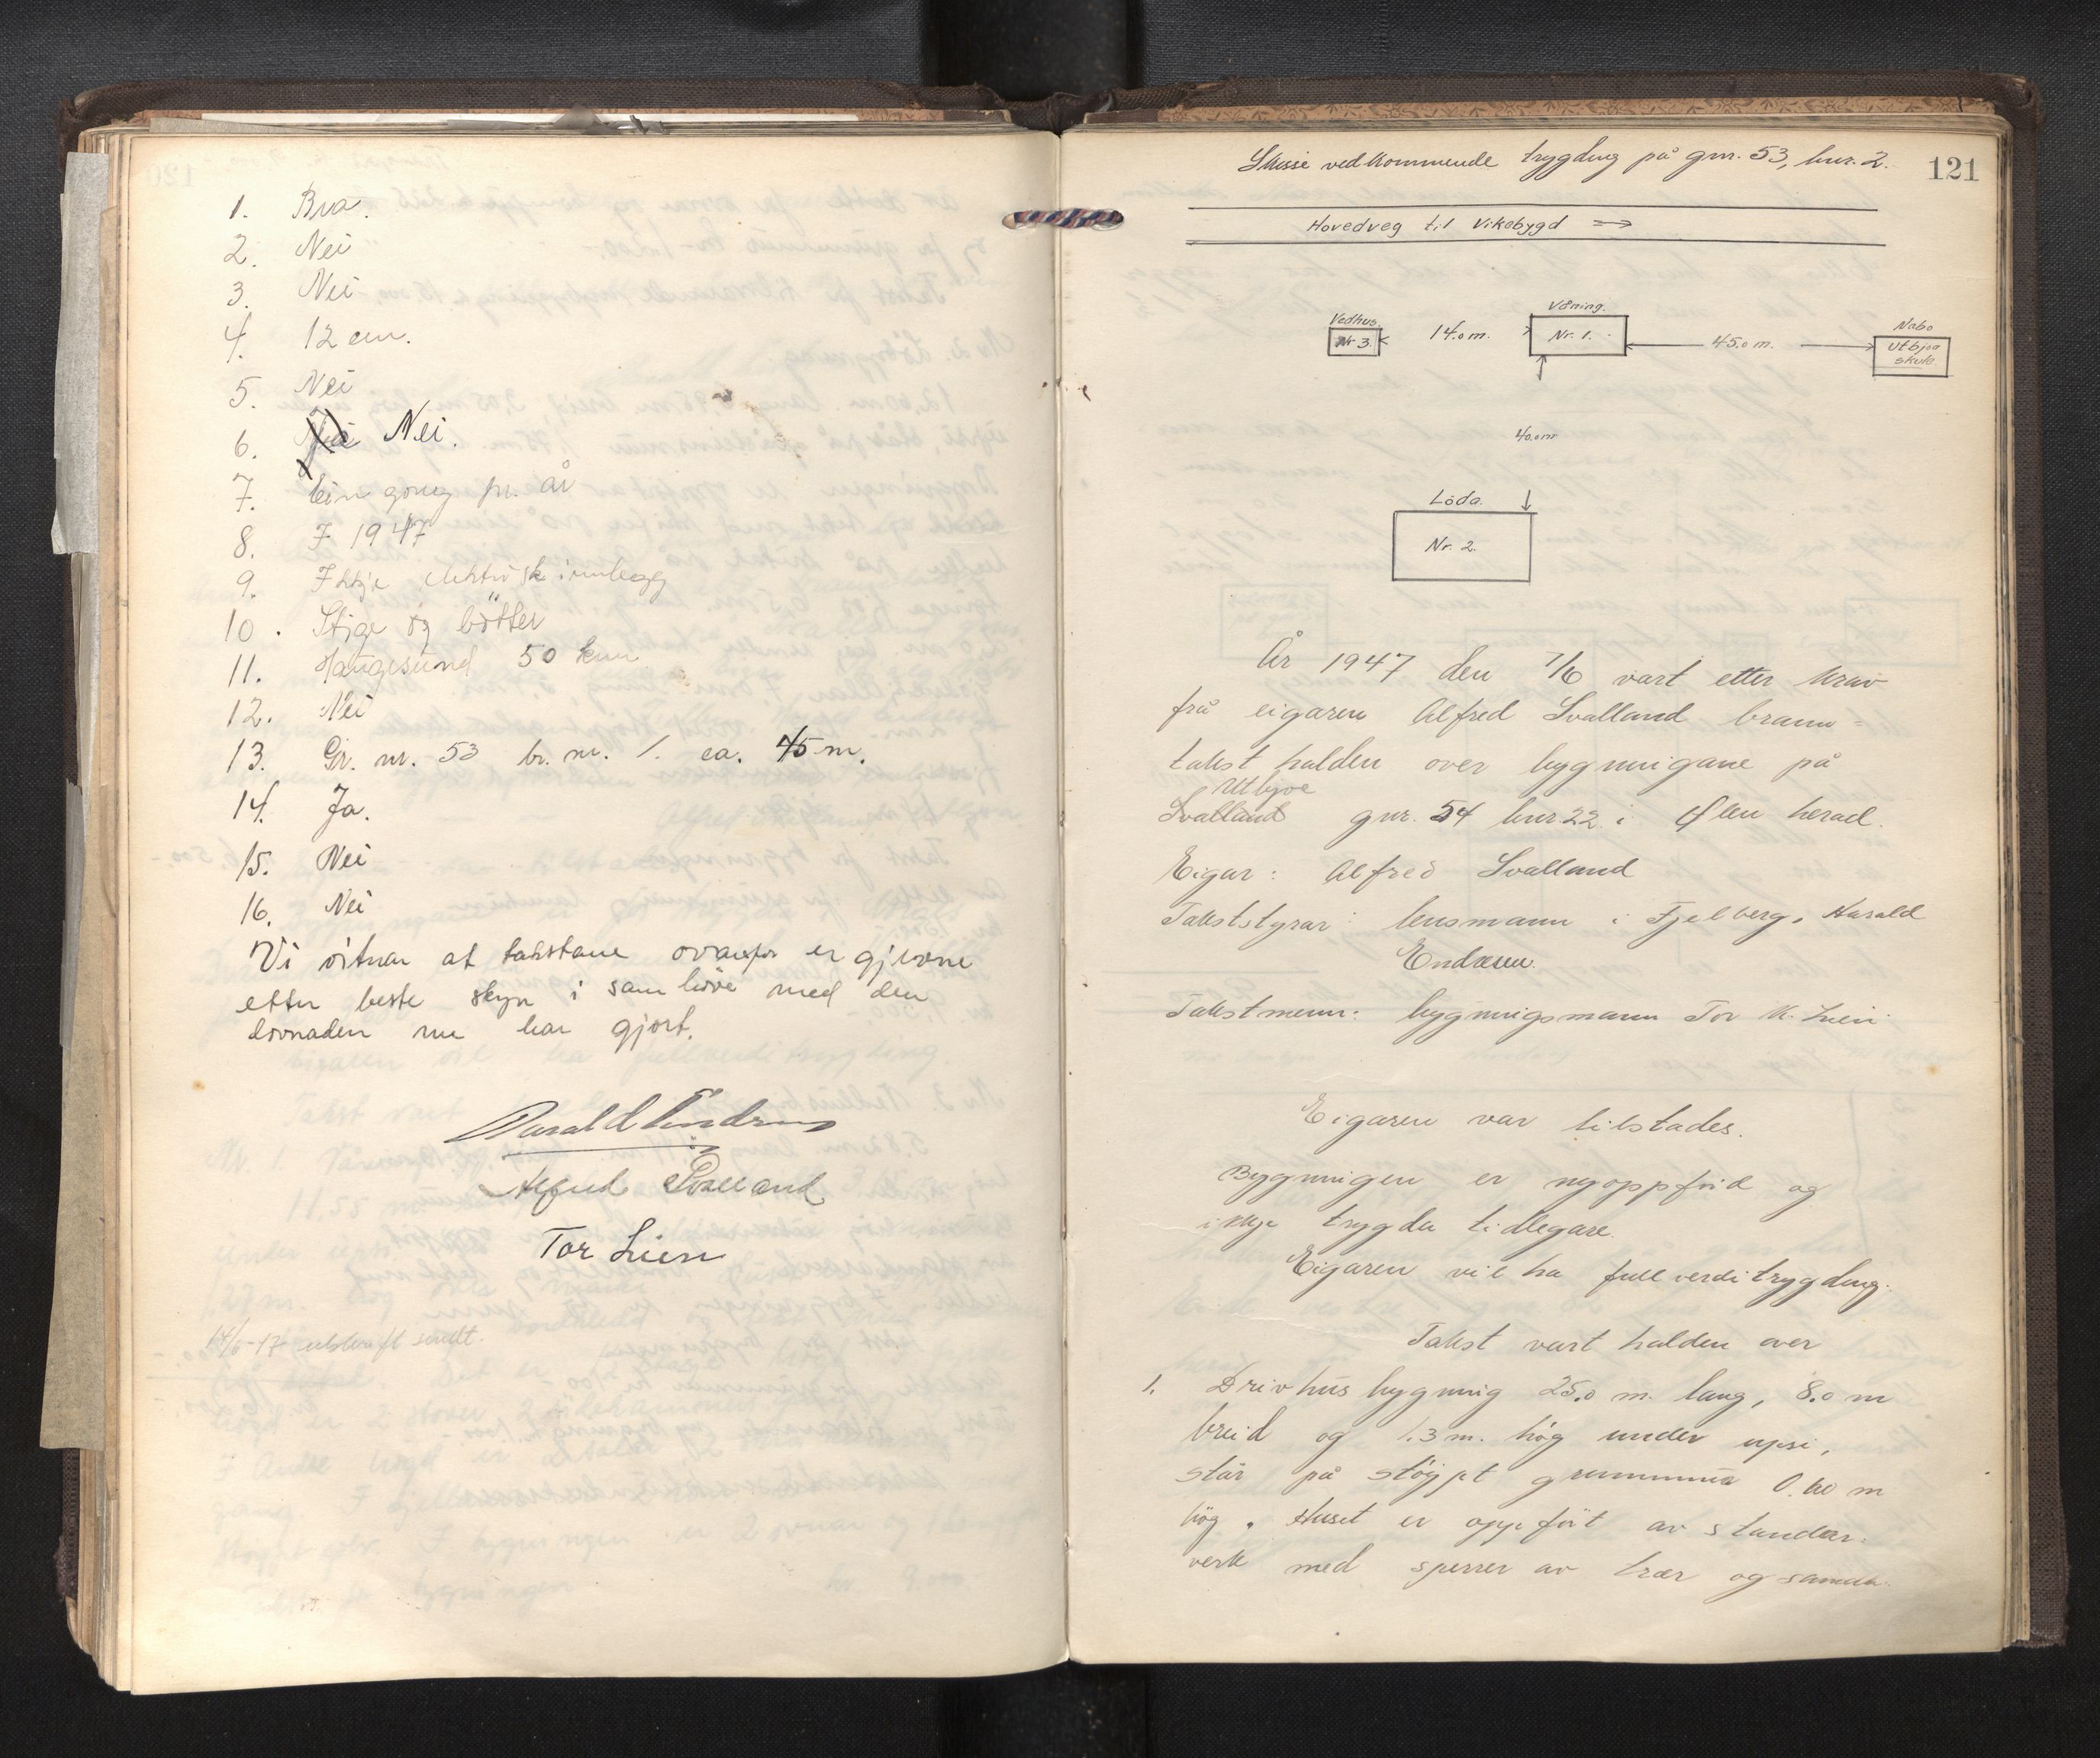 1. Bra.
2. Nei
3. Nei
4. 12 cm.
5. Nei
6. Nei.
7. Ein gong pr. år
8. I 1947
9. Ikkje elektrisk innlegg
10. Stige og bötter
11. Haugesund 50 km
12. Nei
13. Gr. nr. 53 br. nr. 1. ca. 45 m.
14. Ja.
15. Nei
16. Nei
Vi vitnar at takstane ovanfor er gjevne
etter beste skyn i samhöve med den
dovnaden me har gjort.
Harald Endresen
Alfred Svalland
Tor Lien
14/6-47 utskrift sendt.
Skisse vedkommende trygding på gnr. 53, bnr. 2.
121
Hovedveg til Vikebygd →
Vedhus
Nr 3.
14.0 m.
Våning.
Nr. 1.
45.0 m.
Nabo
Utbjoa
skule
40.0 m
Löda.
Nr. 2.
År 1947 den 7/6 vart etter krav
frå eigaren Alfred Svalland brann=
takst halden over bygningane på
Utbjoe
Svalland gnr. 54 bnr. 22 i Ølen herad.
Eigar: Alfred Svalland
Takststyrar: lensmann i Fjelberg, Harald
Endresen.
Takstmenn: bygningsmann Tor K. Lien
Eigaren var tilstades.
Bygningen er nyoppförd og
ikkje trygda tidlegare.
Eigaren vil ha fullverditrygding.
Takst vart halden over
1. Drivhusbygning 25.0 m. lang, 8.0 m
breid og 1.3 m. hög under upsi,
står på stöypt grunnmur 0.60 m
hög. Huset er oppfört av stender-
verk med sperrer av trær og